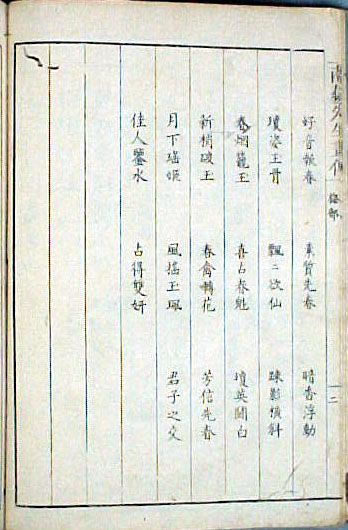 梅部
好音報春 素質先春 暗香浮動
瓊姿玉骨 飄々欲仙 疎影橫斜
春烟籠玉 喜占春魁 瓊英鬪白
新梢破玉 春禽轉花 芳信先春
月下瑤姬 風搖玉珮 君子之交
佳人鑒水 占得雙妍
二